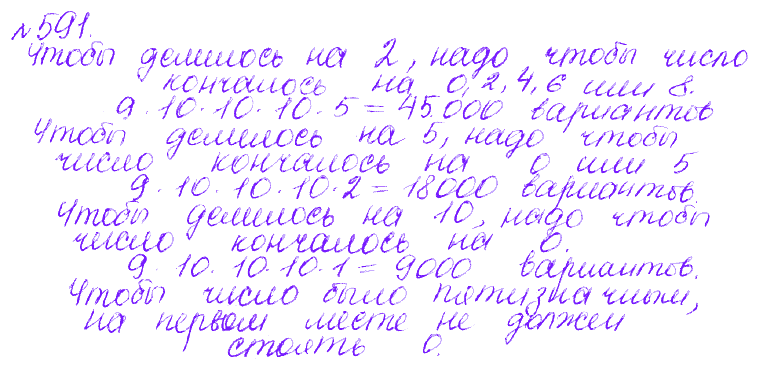 №591.
Чтобы делилось на 2, надо чтобы число
кончалось на 0, 2, 4, 6 или 8.
9·10·10·10·5=45.000 вариантов
Чтобы делилось на 5, надо чтобы
число кончалось на 0 или 5
9·10·10·10·2=18000 вариантов.
Чтобы делилось на 10, надо чтобы
число кончалось на 0.
9·10·10·10·1=9000 вариантов.
Чтобы число было пятизначным,
на первом месте не должен
стоять 0.